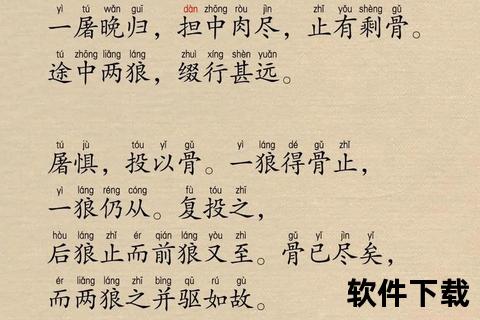 yì tú wǎn guī dàn zhōng ròu jìn zhǐ yǒu shèng gǔ
一屠晚归，担中肉尽，止有剩骨。
tú zhōng liǎng láng zhuì xíng shèn yuǎn
途中两狼，缀行甚远。
tú jù tóu yǐ gǔ yì láng dé gǔ zhǐ
屠惧，投以骨。一狼得骨止，
yì láng réng cóng fù tóu zhī
一狼仍从。复投之，
hòu láng zhǐ ér qián láng yòu zhì gǔ yǐ jìn yǐ
后狼止而前狼又至。骨已尽矣，
ér liǎng láng zhī bìng qū rú gù
而两狼之并驱如故。
软件下载